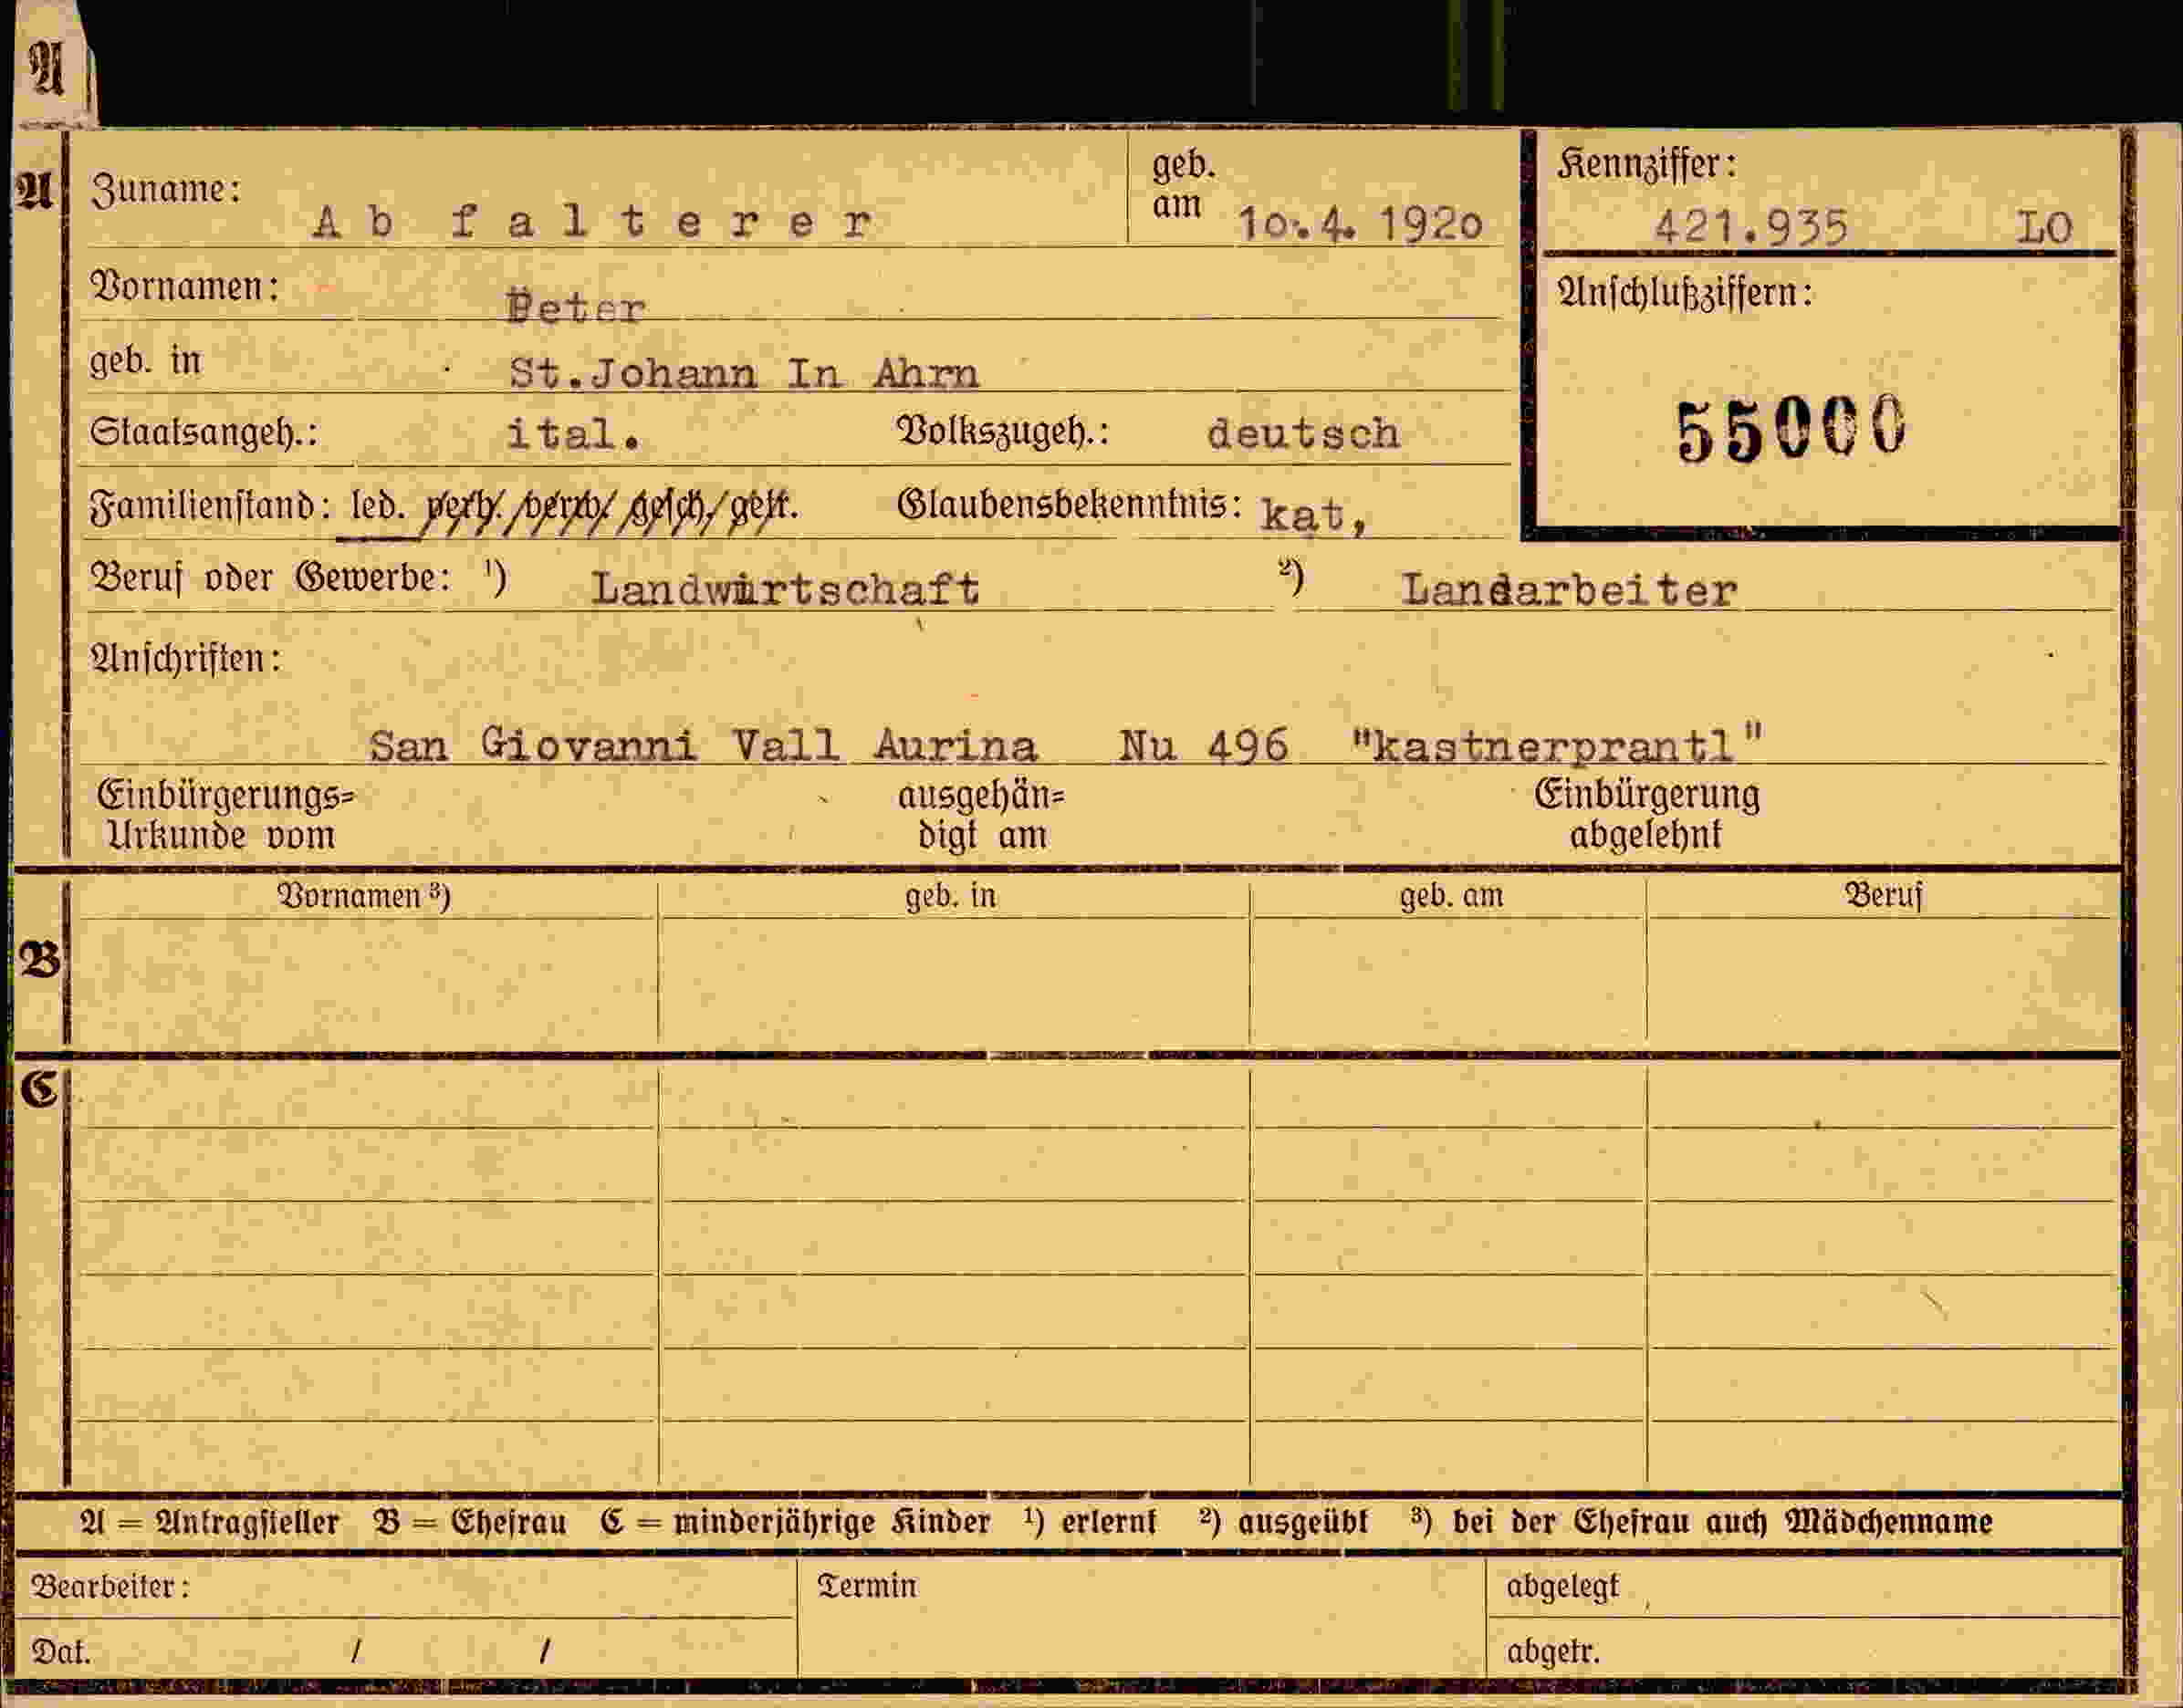 A
A Zuname: Abfalterer geb. am 10.4. 1920 Kennziffer: 421.935 LO
Vornamen: Peter Anschlußziffern:
geb. in St.Johann In Ahrn
55000
Staatsangeh.: ital. Volkszugeh.: deutsch
Familienstand: led. verh. verw. gesch. getr. Glaubensbekenntnis: kat,
Beruf oder Gewerbe: ¹) Landwirtschaft ²) Landarbeiter
Anschriften:
San Giovanni Vall Aurina Nu 496 "kastnerprantl"
Einbürgerungs= ausgehän= Einbürgerung
Urkunde vom digt am abgelehnt
Vornamen ³) geb. in geb. am Beruf
B
C
A = Antragsteller B = Ehefrau C = minderjährige Kinder ¹) erlernt ²) ausgeübt ³) bei der Ehefrau auch Mädchenname
Bearbeiter: Termin abgelegt
Dat. / / abgetr.